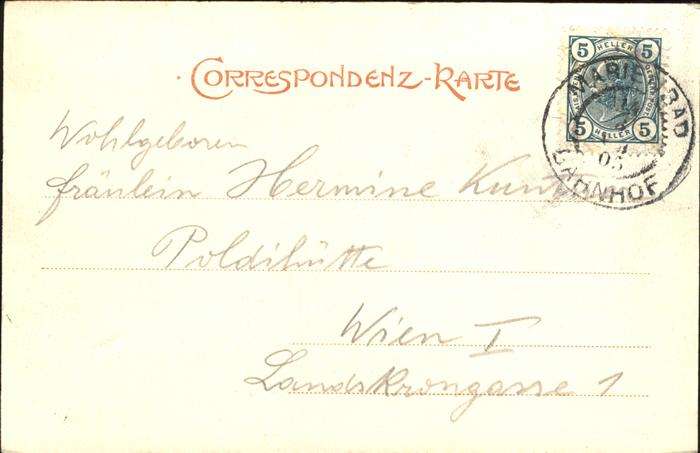 CORRESPONDENZ-KARTE
5 HELLER 5
5 HELLER 5
MARIENBAD
05
BAHNHOF
Wohlgeboren
fräulein Hermine
Poldihütte
Wien I
Landskrongasse 1